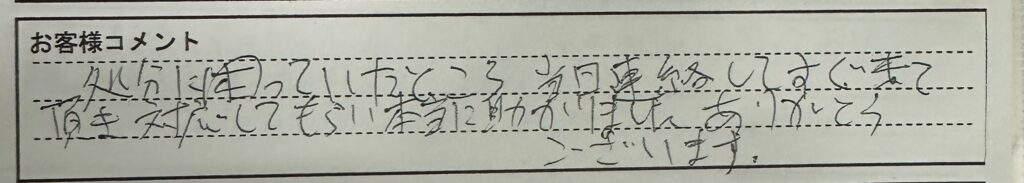 お客様コメント
処分に困っていたところ 当日連絡してすぐ来て
頂き 対応してもらい本当に助かりました ありがとう
ございます.